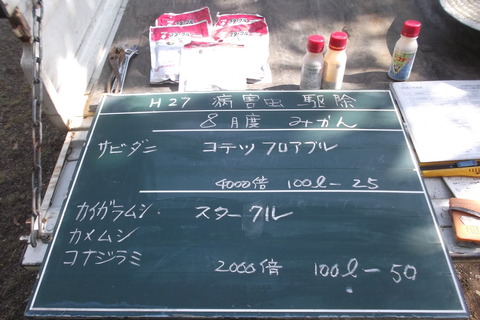 H27 病害虫 駆除
8月度 みかん
サビダニ コテツフロアブル
4000倍 100ℓ-25
カイガラムシ スタークル
カメムシ
コナジラミ 2000倍 100ℓ-50